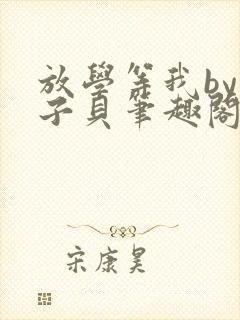 放學等我by
子貝筆趣閣
宋康昊